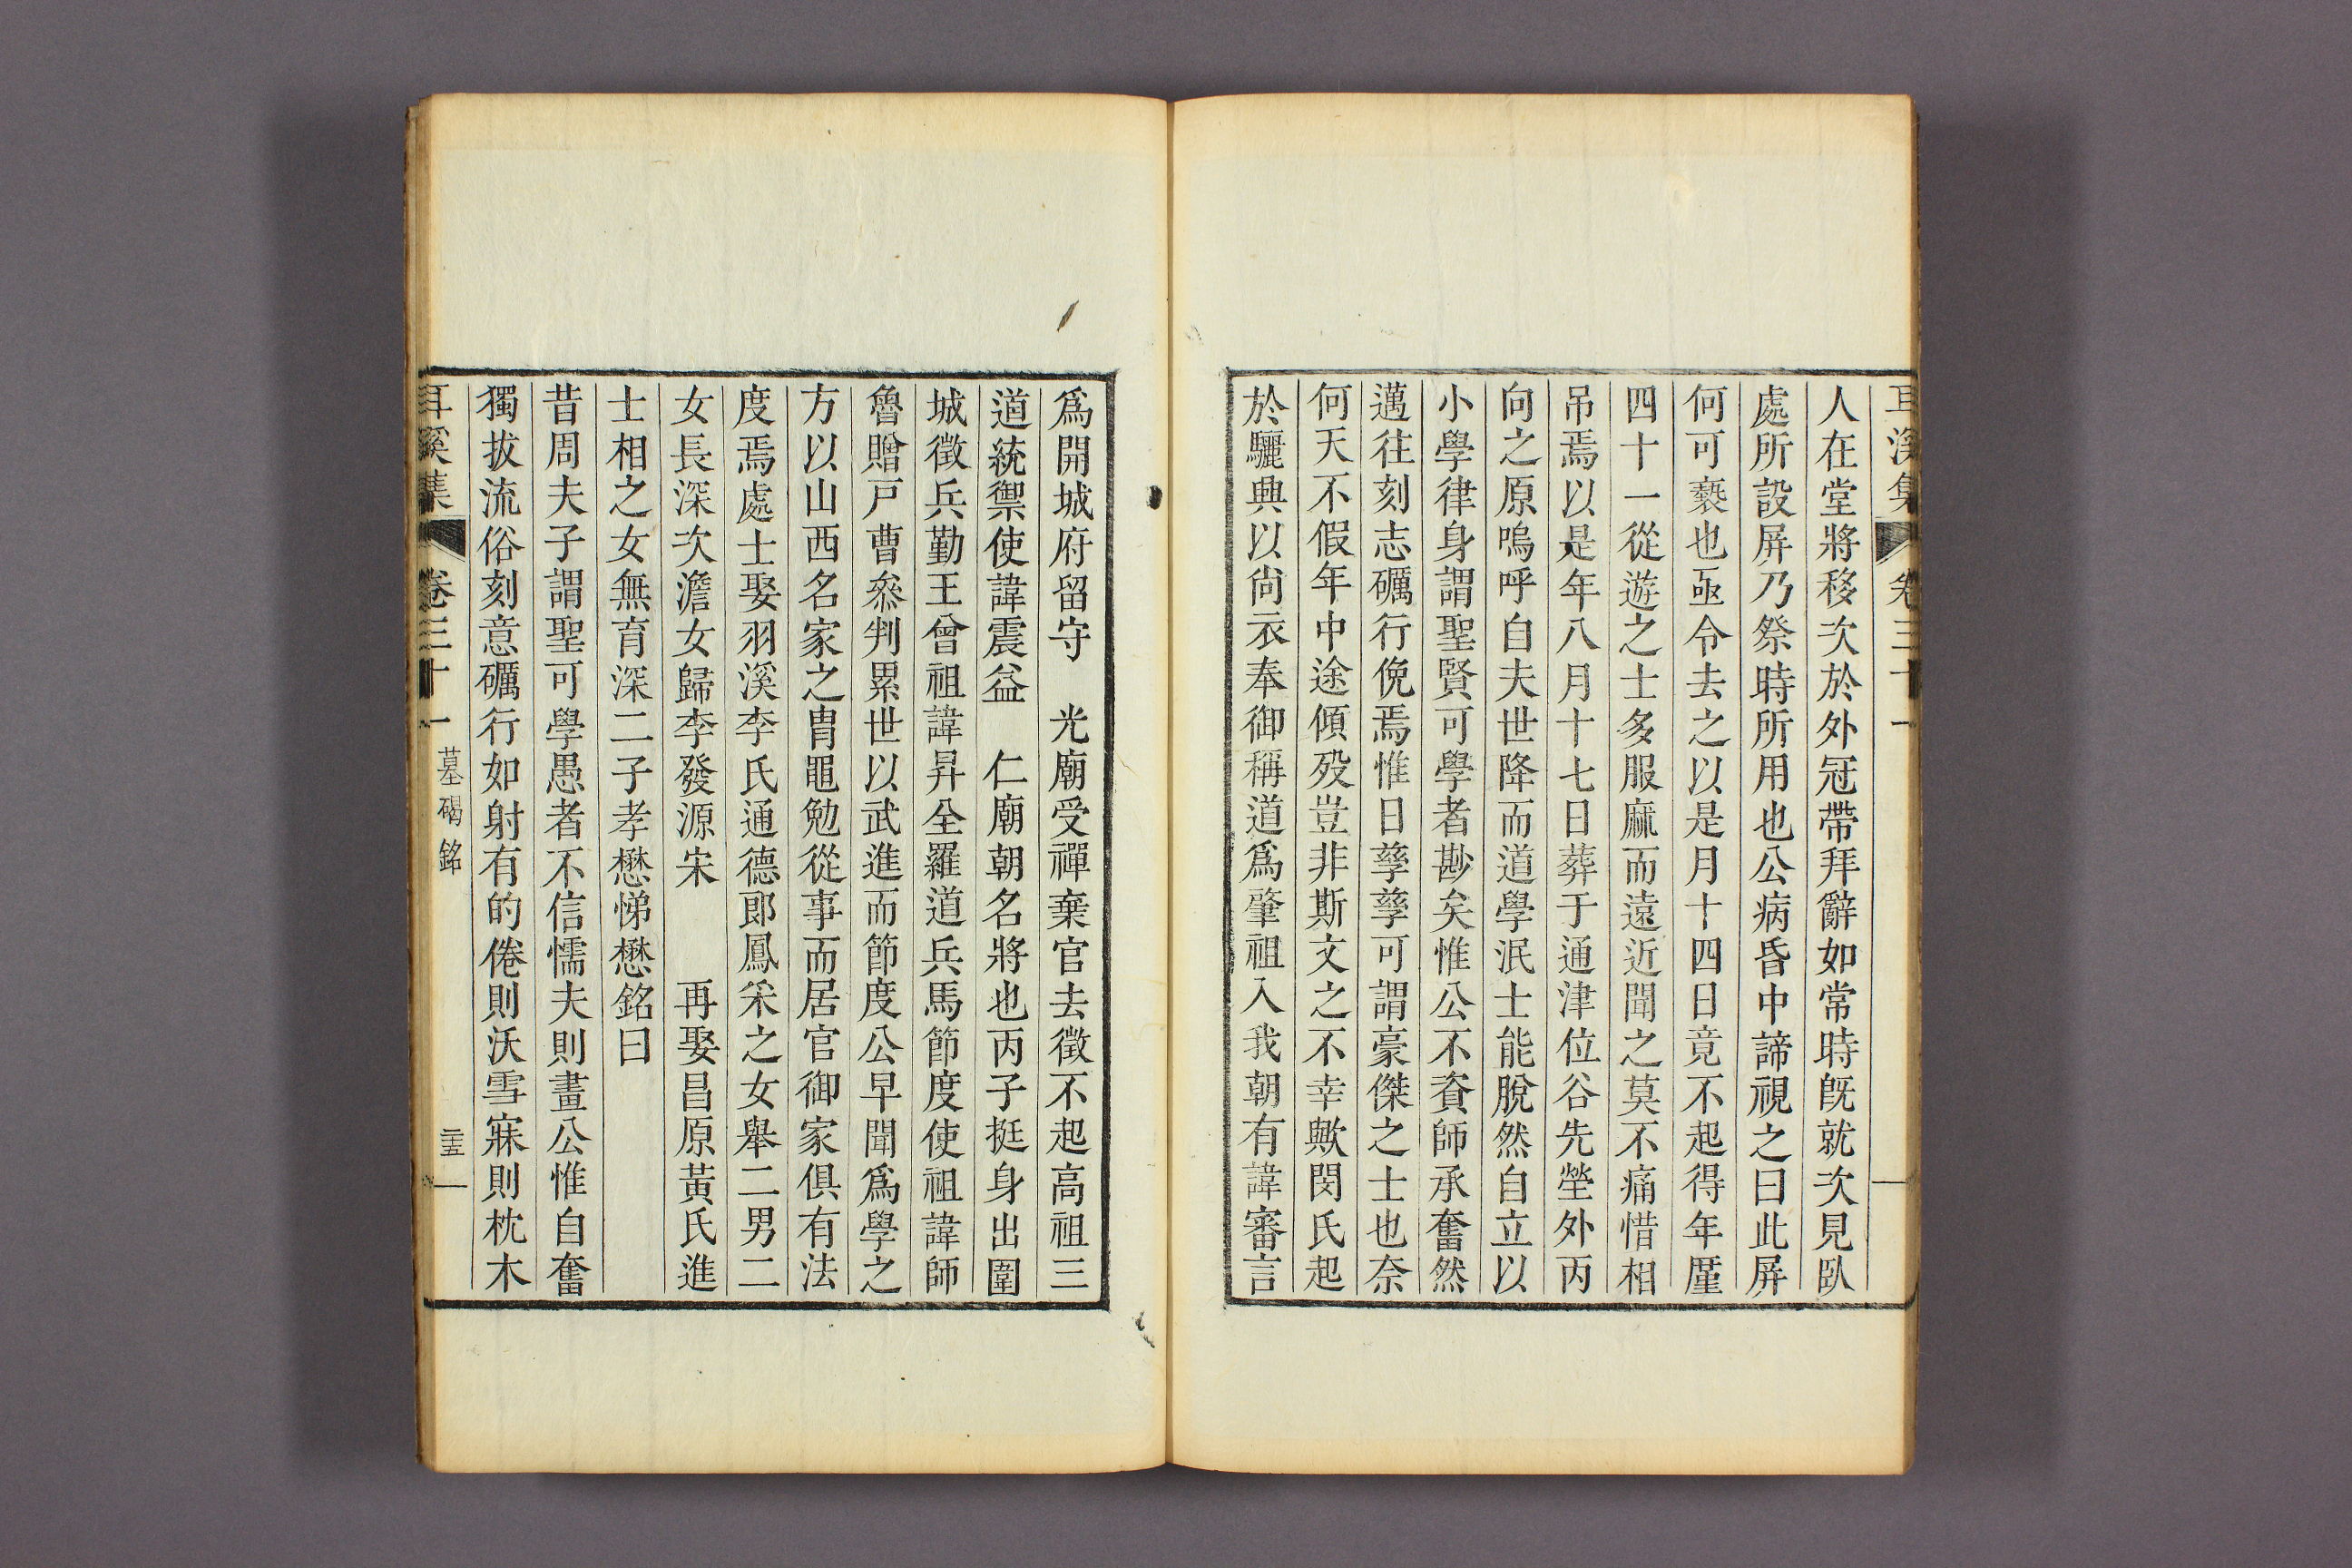 耳溪集 卷三十一
人在堂將移次於外冠帶拜辭如常時旣就次見臥
處所設屏乃祭時所用也公病昏中諦視之曰此屏
何可褻也亟令去之以是月十四日竟不起得年厪
四十一從遊之士多服麻而遠近聞之莫不痛惜相
吊焉以是年八月十七日葬于通津位谷先塋外丙
向之原嗚呼自夫世降而道學泯士能脫然自立以
小學律身謂聖賢可學者尠矣惟公不資師承奮然
邁往刻志礪行俛焉惟日孶孶可謂豪傑之士也奈
何天不假年中途傾歿豈非斯文之不幸歟閔氏起
於驪興以尙衣奉御稱道爲肇祖入我朝有諱審言
爲開城府留守 光廟受禪棄官去徵不起高祖三
道統禦使諱震益 仁廟朝名將也丙子挺身出圍
城徵兵勤王曾祖諱昇全羅道兵馬節度使祖諱師
魯贈戸曹叅判累世以武進而節度公早聞爲學之
方以山西名家之胄黽勉從事而居官御家俱有法
度焉處士娶羽溪李氏通德郞鳳采之女舉二男二
女長深次澹女歸李發源宋 再娶昌原黃氏進
士相之女無育深二子孝懋悌懋銘曰
昔周夫子謂聖可學愚者不信懦夫則畫公惟自奮
獨拔流俗刻意礪行如射有的倦則沃雪寐則枕木
耳溪集 卷三十一 墓碣銘 二十五